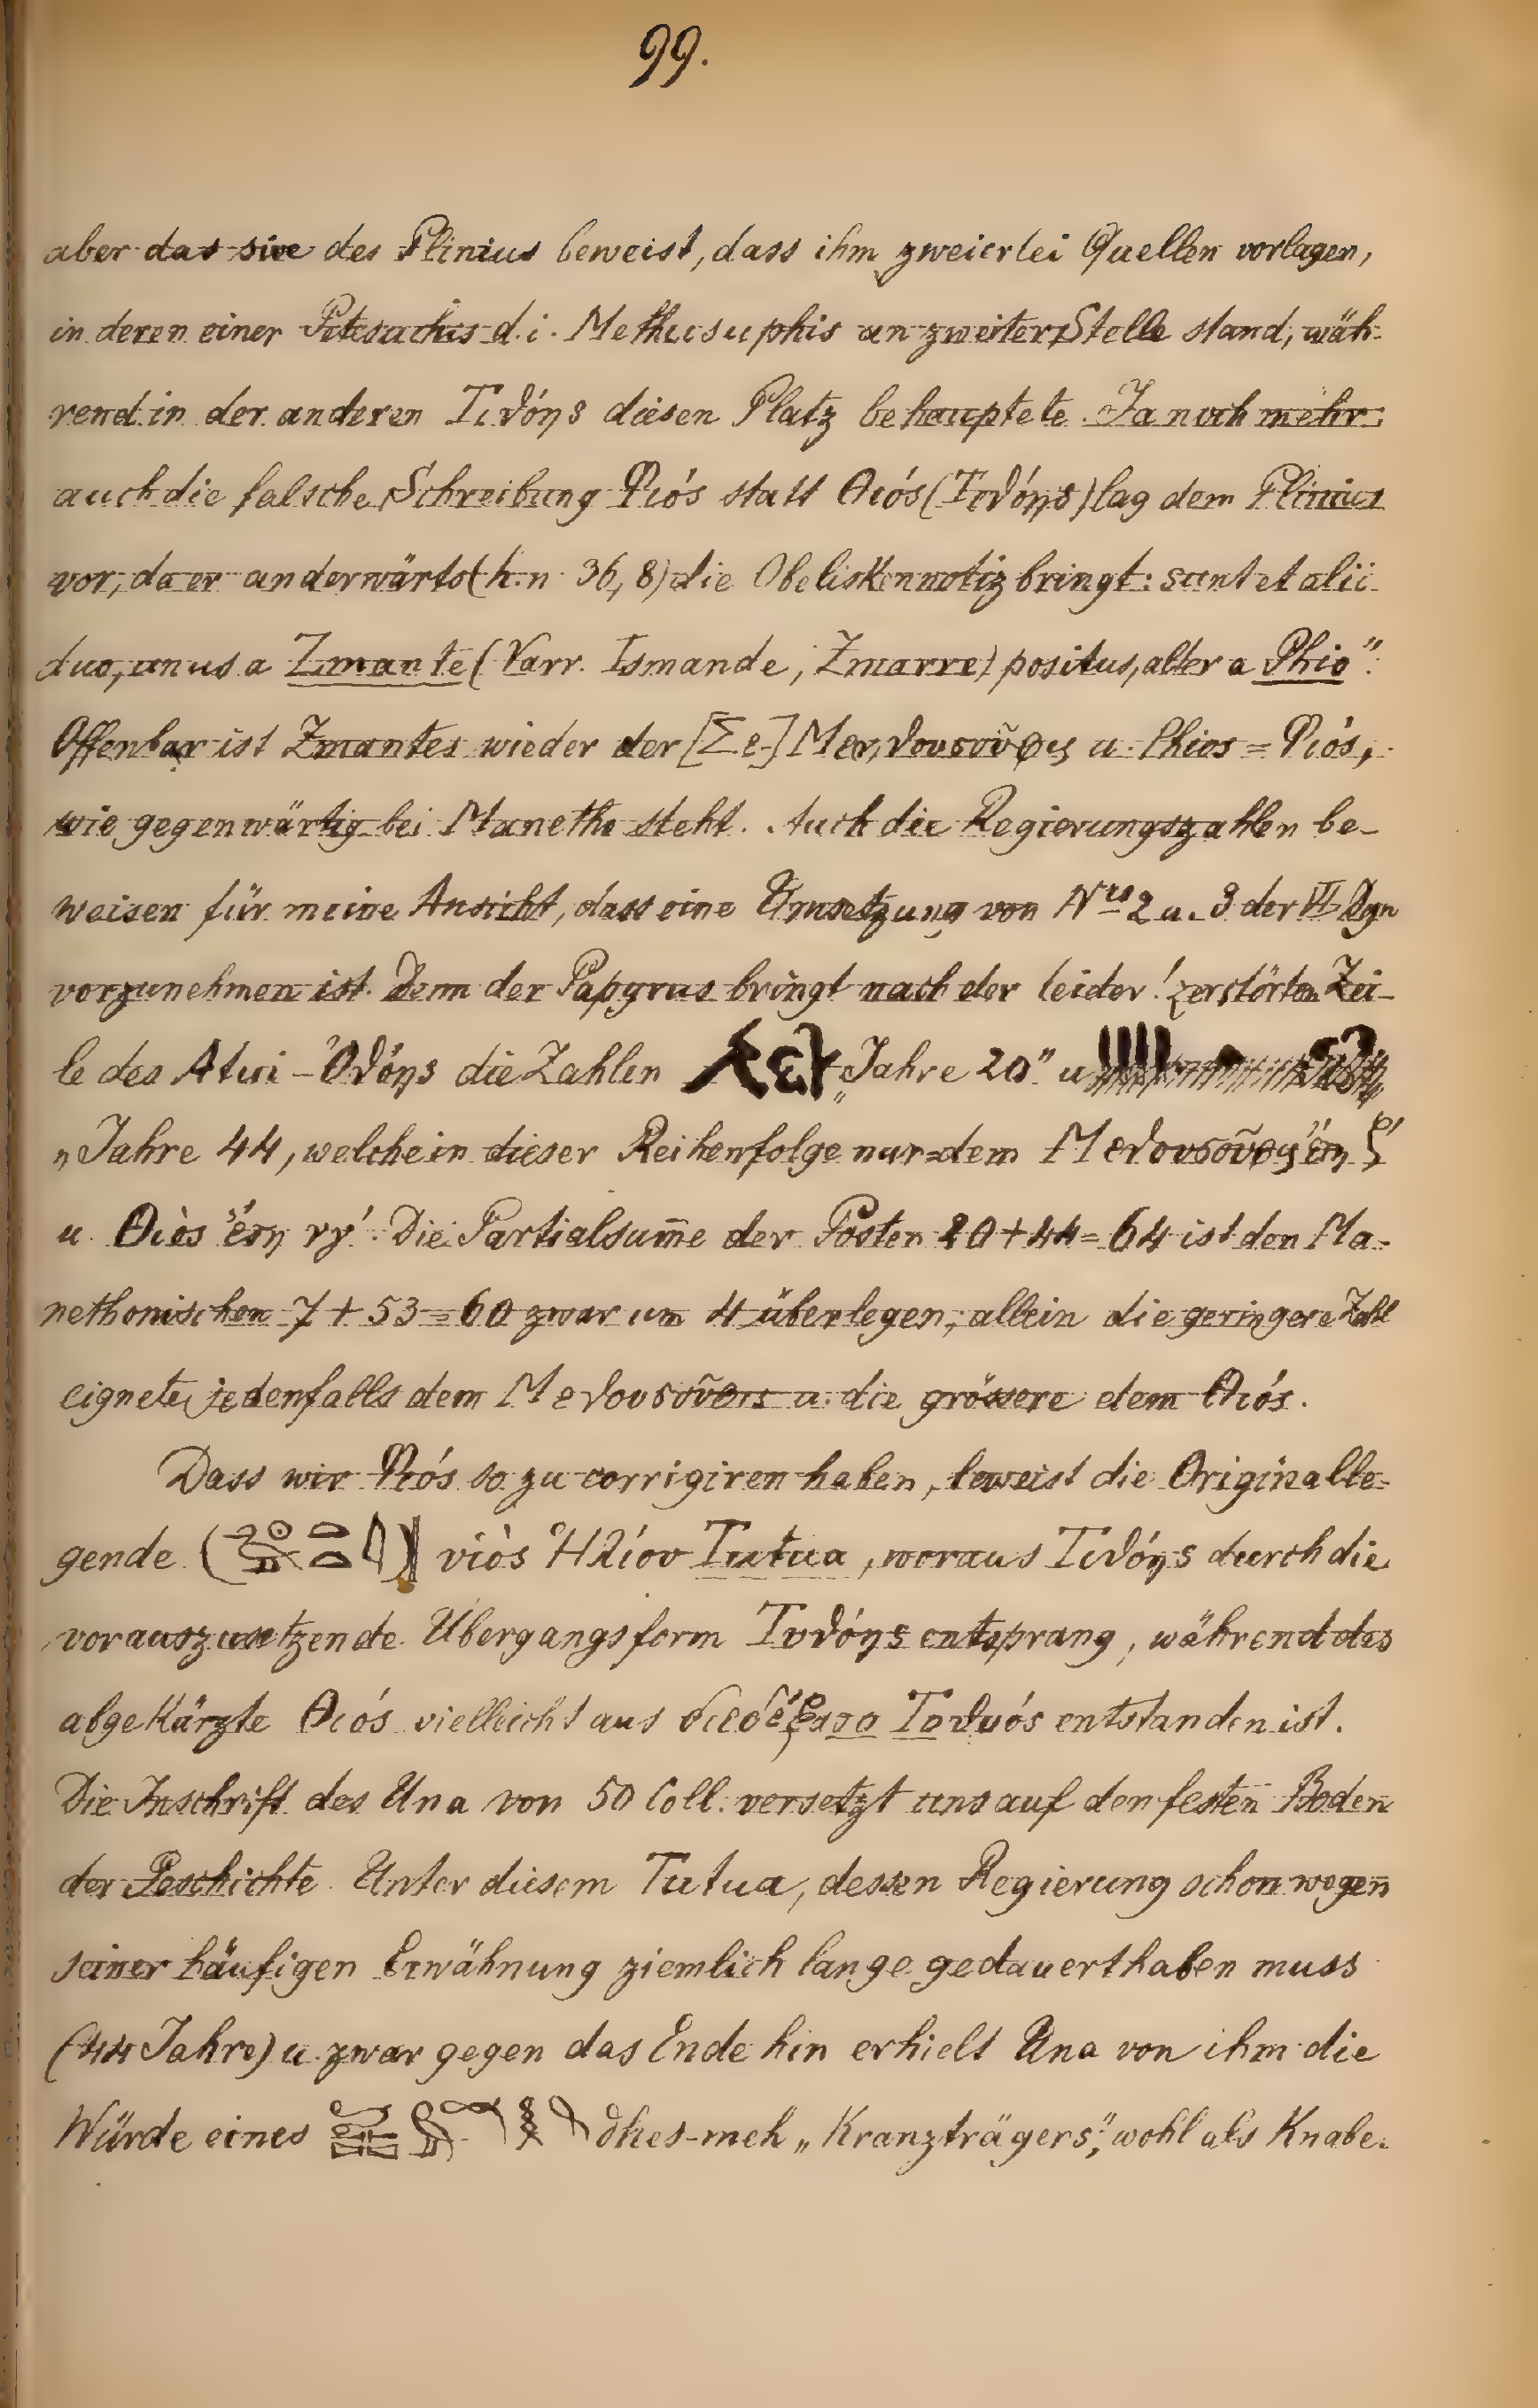 99.
aber das sive des Plinius beweist, dass ihm zweierlei Quellen vorlagen,
in deren einer Petesuchis d. i. Methusuphis an zweiter Stelle stand, wäh-
rend in der anderen Τιθόης diesen Platz behauptete. Ja noch mehr:
auch die falsche Schreibung Φιός statt Θιός (Τιθόης) lag dem Plinius
vor, da er anderwärts (h. n. 36, 8) die Obeliskennotiz bringt: sunt et alii
duo, unus a Zmante (Varr. Ismande, Zmarre) positus, alter a Phio".
Offenbar ist Zmantes wieder der u. Phios = Φιός,
wie gegenwärtig bei Manetho steht. Auch die Regierungszahlen be-
weisen für meine Ansicht, dass eine Umsetzung von Nrs 2 u. 3 der VI Dyn
vorzunehmen ist. Denn der Papyrus bringt nach der leider! zerstörten Zei-
le des Atui - Ὀθόης die Zahlen „Jahre 20" u
„Jahre 44, welche in dieser Reihenfolge nur dem Μεθουσοῦφις ἔτη ζ'
u. Θιὸς ἔτη νγ'. Die Partialsum̅e der Posten 20 + 44 = 64 ist den Ma-
nethonischen 7 + 53 = 60 zwar um 4 überlegen; allein die geringere Zahl
eignete jedenfalls dem Μεθουσοῦφις u. die grössere dem Θιός.
Dass wir Φιός so zu corrigiren haben, beweist die Originalle-
gende ( ) υἱὸς Ἡλίου Tutua, woraus Τιθόης durch die
vorauszusetzende Übergangsform Τυθόης entsprang, während das
abgekürzte Θιός vielleicht aus Τοθυός entstanden ist.
Die Inschrift des Una von 50 Coll. versetzt uns auf den festen Boden
der Geschichte. Unter diesem Tutua, dessen Regierung schon wegen
seiner häufigen Erwähnung ziemlich lange gedauert haben muss
(44 Jahre) u. zwar gegen das Ende hin erhielt Una von ihm die
Würde eines dhes-meh „Kranzträgers", wohl als Knabe.